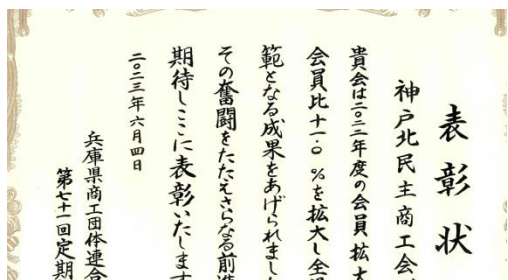 表彰状
神戸北民主商工会
貴会は二〇二二年度の会員拡大
会員比十一・〇%を拡大し全
範となる成果をあげられまし
その奮闘をたたえさらなる前進
期待しここに表彰いたします
二〇二三年六月四日
兵庫県商工団体連合
第七十一回定期